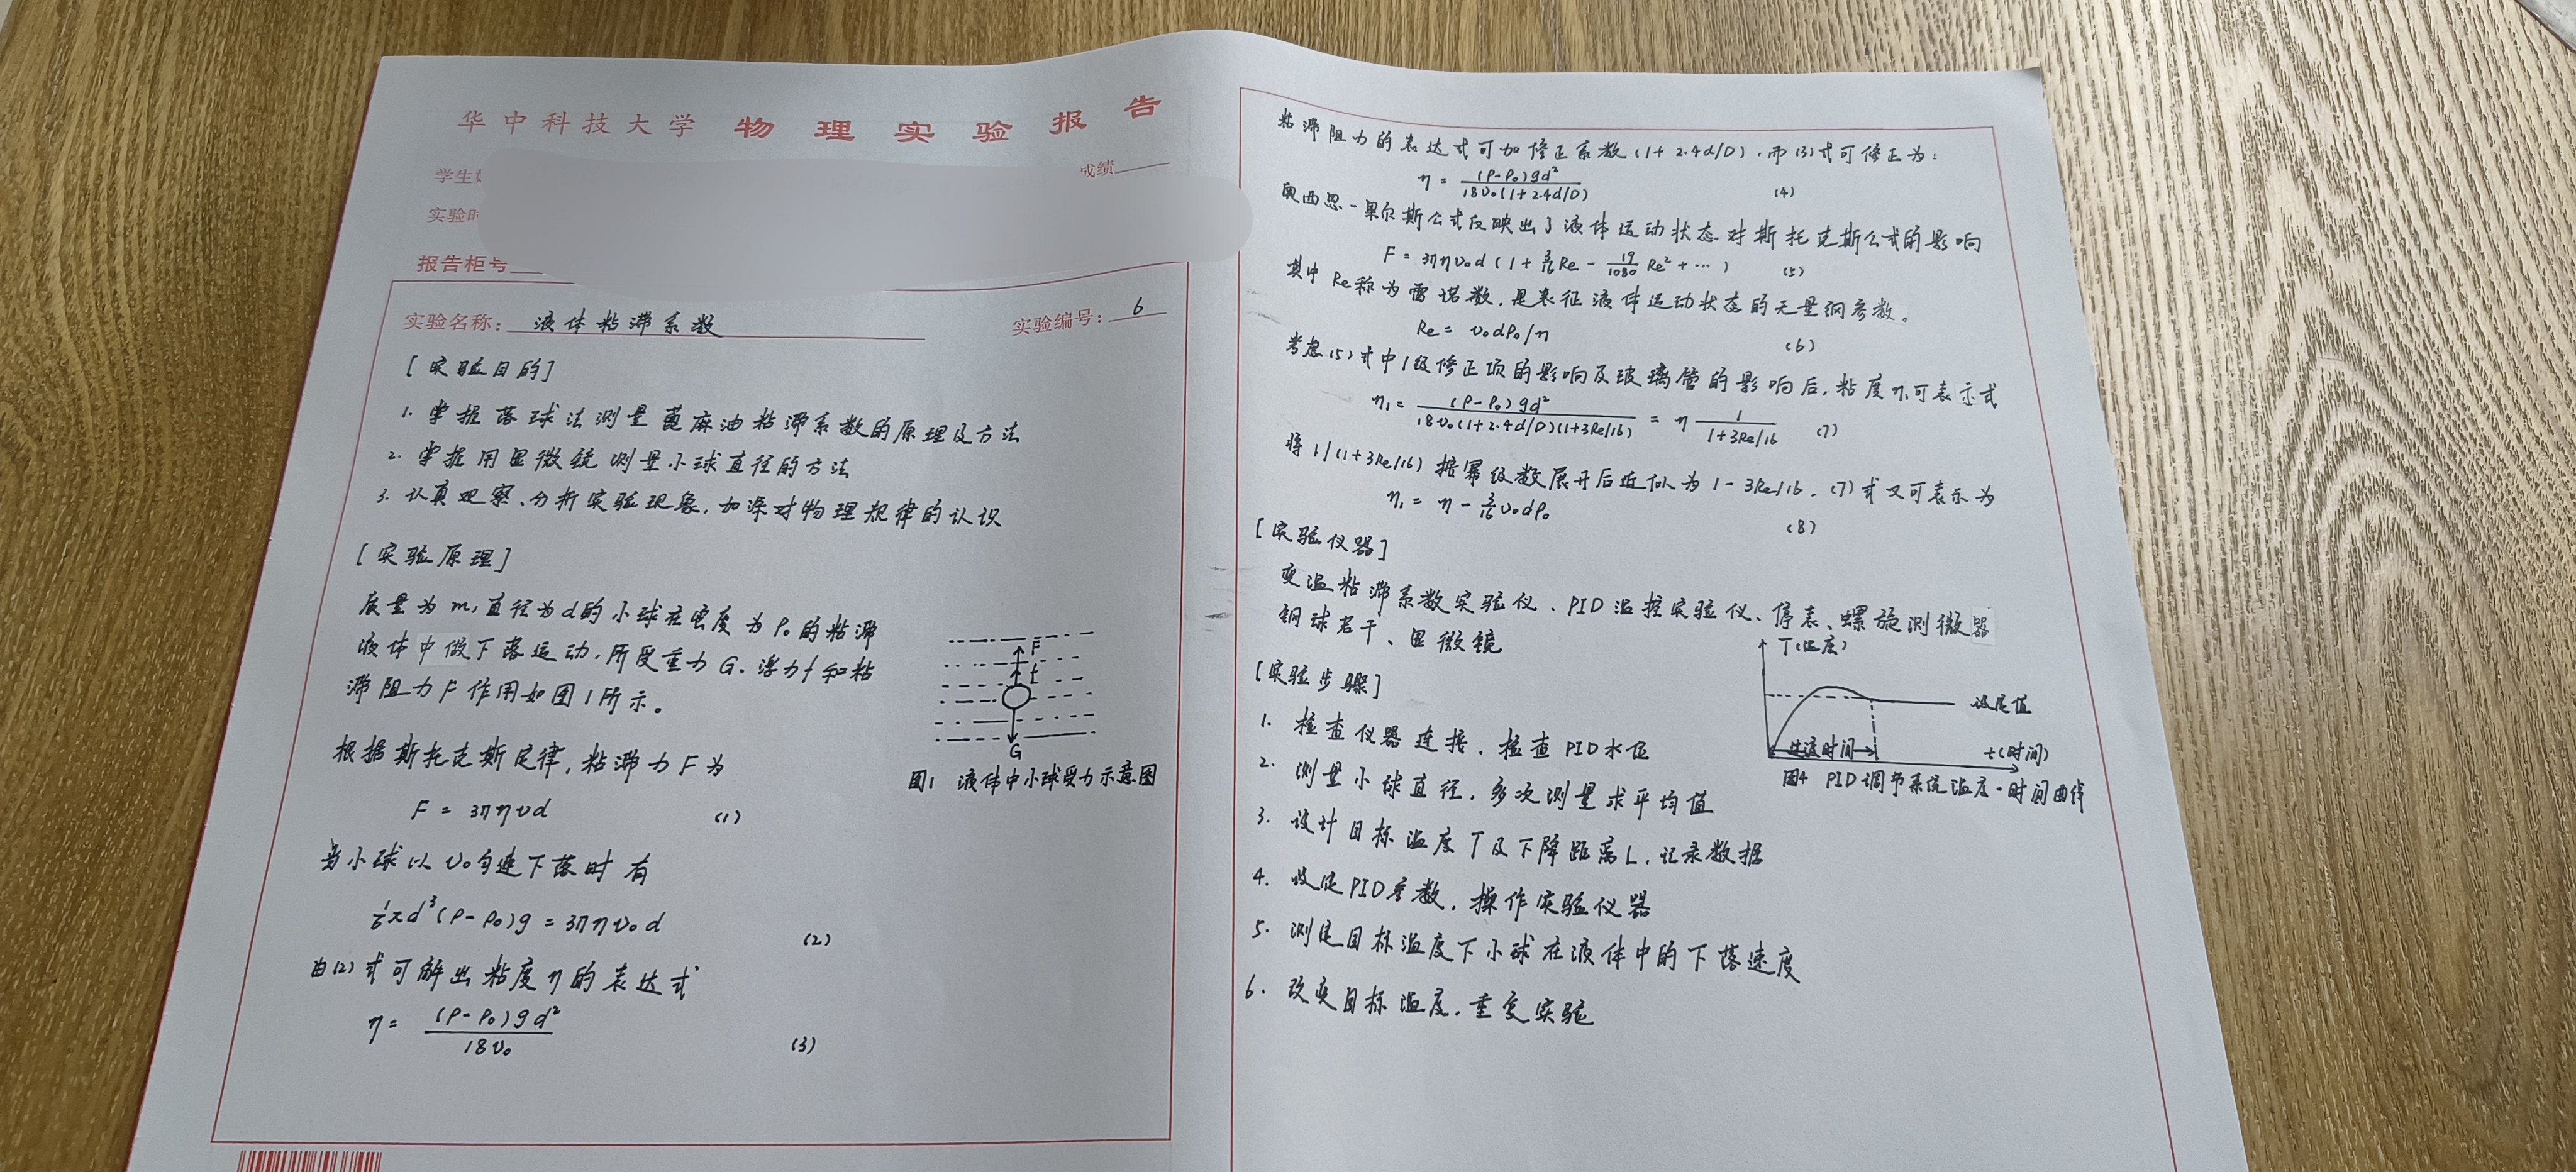 华中科技大学 物理实验报告
学生
成绩
实验时
报告柜号
实验名称：液体粘滞系数
实验编号：6
[实验目的]
1. 掌握落球法测量蓖麻油粘滞系数的原理及方法
2. 掌握用显微镜测量小球直径的方法
3. 认真观察、分析实验现象，加深对物理规律的认识
[实验原理]
质量为m，直径为d的小球在密度为ρ₀的粘滞
液体中做下落运动，所受重力G、浮力f和粘
滞阻力F作用如图1所示。
F
f
G
图1 液体中小球受力示意图
根据斯托克斯定律，粘滞力F为
F = 3πηvd (1)
当小球以v₀匀速下落时有
1/6 πd³(ρ-ρ₀)g = 3πηv₀d (2)
由(2)式可解出粘度η的表达式
η = (ρ-ρ₀)gd² / 18v₀ (3)
粘滞阻力的表达式可加修正系数(1+2.4d/D)，而(3)式可修正为：
η = (ρ-ρ₀)gd² / 18v₀(1+2.4d/D) (4)
奥西思-果尔斯公式反映出了液体运动状态对斯托克斯公式的影响
F = 3πηv₀d(1 + 3/16 Re - 19/1080 Re² + ⋯) (5)
其中Re称为雷诺数，是表征液体运动状态的无量纲参数。
Re = v₀dρ₀/η (6)
考虑(5)式中1级修正项的影响及玻璃管的影响后，粘度η₁可表示式
η₁ = (ρ-ρ₀)gd² / 18v₀(1+2.4d/D)(1+3Re/16) = η 1 / 1+3Re/16 (7)
将1/(1+3Re/16)按幂级数展开后近似为1-3Re/16，(7)式又可表示为
η₁ = η - 3/16 v₀dρ₀ (8)
[实验仪器]
变温粘滞系数实验仪、PID温控实验仪、停表、螺旋测微器
钢球若干、显微镜
[实验步骤]
1. 检查仪器连接，检查PID水位
2. 测量小球直径，多次测量求平均值
3. 设计目标温度T及下降距离L，记录数据
4. 设定PID参数，操作实验仪器
5. 测定目标温度下小球在液体中的下落速度
6. 改变目标温度，重复实验
T(温度)
设定值
过渡时间
t(时间)
图4 PID调节系统温度-时间曲线